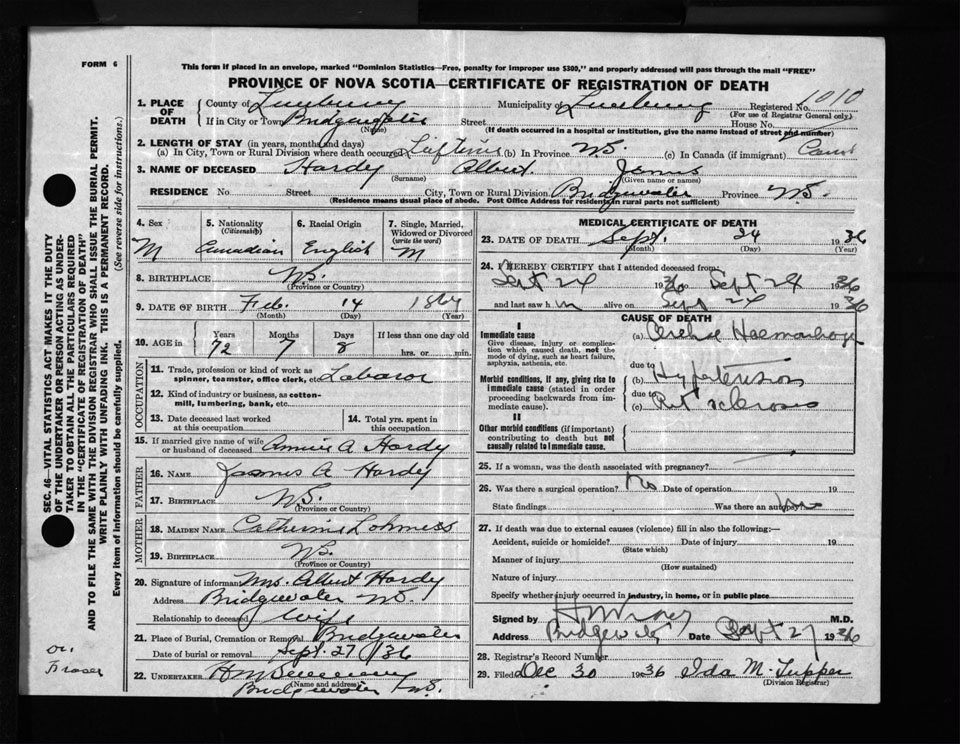 FORM 6
This form if placed in an envelope, marked "Dominion Statistics—Free, penalty for improper use $300," and properly addressed will pass through the mail "FREE"
PROVINCE OF NOVA SCOTIA—CERTIFICATE OF REGISTRATION OF DEATH
1. PLACE OF DEATH
County of Lunenburg Municipality of Lunenburg Registered No. 1010
(For use of Registrar General only.)
If in City or Town Bridgewater Street House No.
(Name) (If death occurred in a hospital or institution, give the name instead of street and number)
2. LENGTH OF STAY (in years, months and days)
(a) In City, Town or Rural Division where death occurred Life Time (b) In Province N.S. (c) In Canada (if immigrant)
3. NAME OF DECEASED Hardy Albert James
(Surname) (Given name or names)
RESIDENCE No. Street City, Town or Rural Division Bridgewater Province N.S.
(Residence means usual place of abode. Post Office Address for residents in rural parts not sufficient)
4. Sex M
5. Nationality (Citizenship) Canadian
6. Racial Origin English
7. Single, Married, Widowed or Divorced (write the word) M
8. BIRTHPLACE N.S.
(Province or Country)
9. DATE OF BIRTH Feb. 14 1864
(Month) (Day) (Year)
10. AGE in Years Months Days If less than one day old
72 7 8 hrs. or min.
OCCUPATION
11. Trade, profession or kind of work as spinner, teamster, office clerk, etc. Labaror
12. Kind of industry or business, as cotton-mill, lumbering, bank, etc.
13. Date deceased last worked at this occupation
14. Total yrs. spent in this occupation.
15. If married give name of wife or husband of deceased Annie A Hardy
FATHER
16. NAME James A Hardy
17. BIRTHPLACE N.S.
(Province or Country)
MOTHER
18. MAIDEN NAME Catherine Lohness
19. BIRTHPLACE N.S.
(Province or Country)
20. Signature of informant Mrs. Albert Hardy
Address Bridgewater N.S.
Relationship to deceased Wife
21. Place of Burial, Cremation or Removal Bridgewater
Date of burial or removal Sept. 27/36
22. UNDERTAKER
(Name and address)
Bridgewater N.S.
MEDICAL CERTIFICATE OF DEATH
23. DATE OF DEATH Sept. 24 1936
(Month) (Day) (Year)
24. I HEREBY CERTIFY that I attended deceased from:
Sept 24 1936 to Sept 24 1936
and last saw him alive on Sept 24 1936
CAUSE OF DEATH
I
Immediate cause
Give disease, injury or complication which caused death, not the mode of dying, such as heart failure, asphyxia, asthenia, etc.
(a) Cerebral Haemorrhage
due to
Morbid conditions, if any, giving rise to immediate cause (stated in order proceeding backwards from immediate cause).
(b) Hypertension
due to
(c) Art sclerosis
II
Other morbid conditions (if important) contributing to death but not causally related to immediate cause.
25. If a woman, was the death associated with pregnancy?
26. Was there a surgical operation? No Date of operation 19
State findings Was there an autopsy? No
27. If death was due to external causes (violence) fill in also the following:—
Accident, suicide or homicide? Date of injury 19
(State which)
Manner of injury
(How sustained)
Nature of injury
Specify whether injury occurred in industry, in home, or in public place
Signed by M.D.
Address Bridgewater Date Sept 27 1936
28. Registrar's Record Number
29. Filed Dec 30 1936 Ida M. Tupper
(Division Registrar)
SEC. 46—VITAL STATISTICS ACT MAKES IT THE DUTY
OF THE UNDERTAKER OR PERSON ACTING AS UNDER-
TAKER TO OBTAIN ALL THE PARTICULARS REQUIRED
IN THE "CERTIFICATE OF REGISTRATION OF DEATH"
AND TO FILE THE SAME WITH THE DIVISION REGISTRAR WHO SHALL ISSUE THE BURIAL PERMIT.
WRITE PLAINLY WITH UNFADING INK. THIS IS A PERMANENT RECORD.
Every item of information should be carefully supplied. (See reverse side for instructions.)